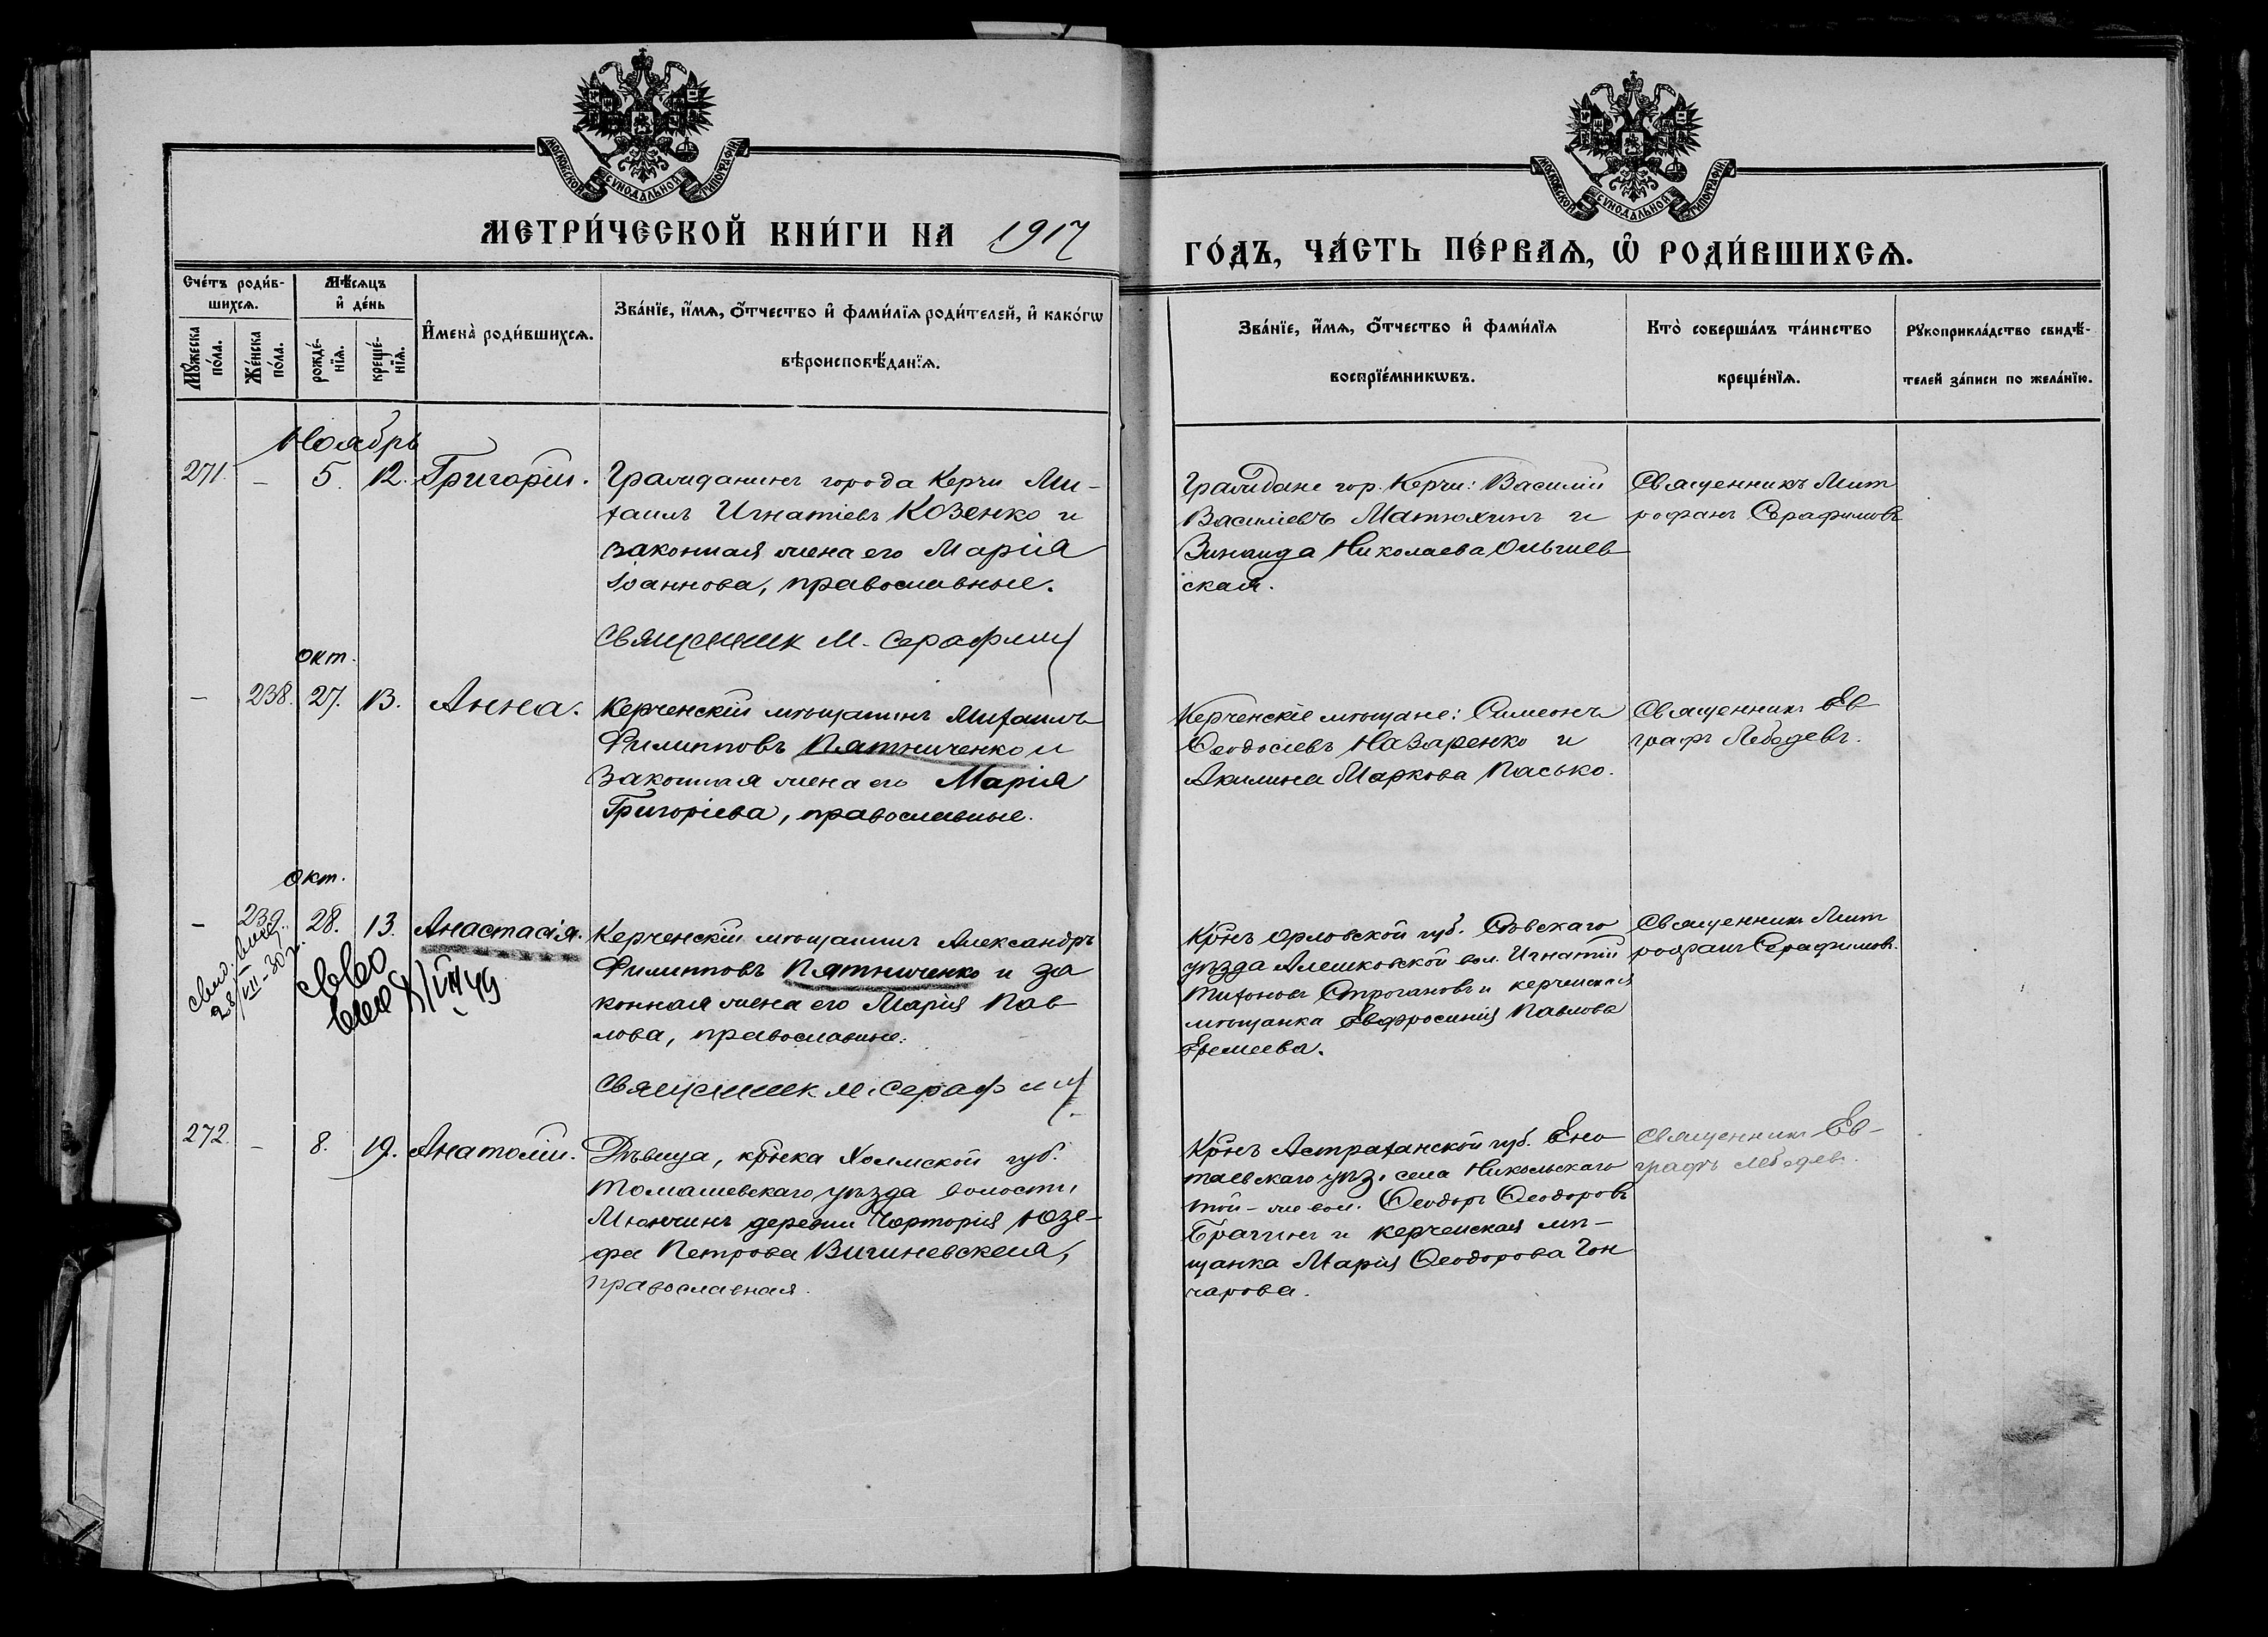 МОСКОВСКОЙ СѴНОДАЛЬНОЙ ТИПОГРАФІИ
МОСКОВСКОЙ СѴНОДАЛЬНОЙ ТИПОГРАФІИ
МЕТРИ́ЧЕСКОЙ КНИ́ГИ НА 1917
ГО́ДЪ, ЧА́СТЬ ПЕ́РВАѦ, Ѽ РОДИ́ВШИХСѦ.
Сче́тъ роди́в-
шихсѧ.
Мѣ́сѧцъ
и҆ де́нь
Мꙋ́жеска
по́ла.
Же́нска
по́ла.
рожде́-
нїѧ.
креще́-
нїѧ.
И҆мена̀ роди́вшихсѧ.
Зва́нїе, и҆́мѧ, ѻ҆́тчество и҆ фами́лїѧ роди́телей, и҆ како́гѡ
вѣроисповѣ́данїѧ.
Зва́нїе, и҆́мѧ, ѻ҆́тчество и҆ фами́лїѧ
воспрїе́мникѡвъ.
Кто̀ соверша́лъ та́инство
креще́нїѧ.
Рꙋкоприкла́дство свидѣ́-
телей за́писи по жела́нїю.
Ноябрь
271. – 5. 12. Григорій.
Гражданинъ города Керчи Ми-
хаилъ Игнатіевъ Козенко и
законная жена его Марія
Іоаннова, православные.
Священник М. Серафим
Граждане гор. Керчи: Василій
Василіевъ Матюхинъ и
Зинаида Николаева Ольшев
ская.
Священникъ Мит
рофанъ Серафимовъ
окт.
– 238. 27. 13. Анна.
Керченскій мѣщанинъ Михаилъ
Филипповъ Пятниченко и
законная жена его Марія
Григоріева, православные.
Керченскіе мѣщане: Симеонъ
Ѳеодосіевъ Назаренко и
Акилина Маркова Пасько.
Священникъ Ев
графъ Лебедевъ.
окт.
– 239. 28. 13. Анастасія.
28/VII-30 г.
Керченскій мѣщанинъ Александръ
Филипповъ Пятниченко и за
конная жена его Марія Пав
лова, православные.
Священник М. Серафим
Кр̃нъ Орловской губ. Сѣвскаго
уѣзда Алешковской вол. Игнатій
Тихоновъ Строгановъ и керченская
мѣщанка Евфросинія Павлова
Еремеева.
Священникъ Мит
рофанъ Серафимовъ.
272. – 8. 19. Анатолій.
Дѣвица, кр̃нка Холмской губ.
Томашевскаго уѣзда волости
деревни Чарторія Юзе-
фа Петрова Вишневская,
православная.
Кр̃нъ Астраханской губ. Ено
таевскаго уѣз. села Никольскаго
той-же вол. Ѳеодоръ Ѳеодоровъ
Брагинъ и керченская мѣ-
щанка Марія Ѳеодорова Гон
чарова.
Священникъ Ев-
графъ Лебедевъ.